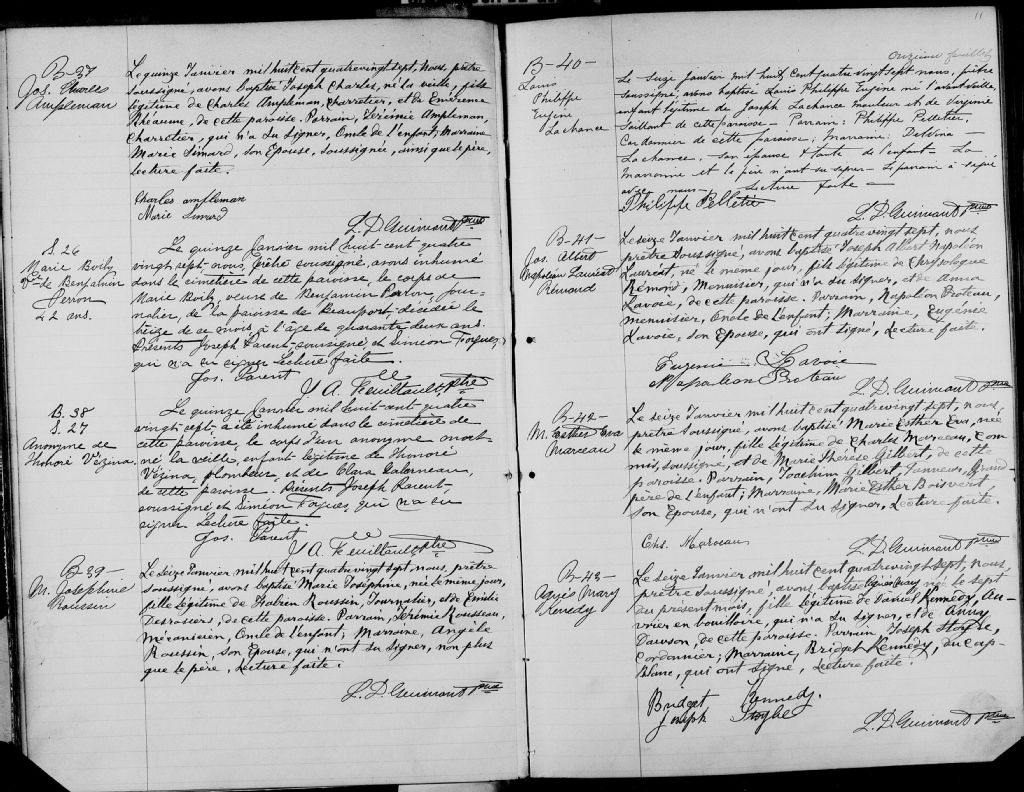 B-37
Jos. Charles
Ampleman
Le quinze Janvier mil huit cent quatrevingt sept, Nous, prêtre
soussigné, avons baptisé Joseph Charles, né la veille, fils
légitime de Charles Ampleman, Charretier, et de Emérence
Rhéaume, de cette paroisse. Parrain, Jérémie Ampleman,
Charretier, qui n'a su signer, Oncle de l'enfant; Marraine
Marie Simard, son Epouse, soussignée, ainsi que le père,
lecture faite.
Charles ampleman
Marie Simard
L. D. Guimont ptre
S. 26
Marie Boily
Vve de Benjamin
Perron
42 ans.
Le quinze Janvier mil huit-cent quatre
vingt-sept-nous, Prêtre soussigné, avons inhumé
dans le cimetière de cette paroisse, le corps de
Marie Boily, veuve de Benjamin Perron Jour-
nalier, de la paroisse de Beauport-décédée le
treize de ce mois, à l'âge de quarante deux ans.
Présents Joseph Parent-soussigné et Simeon Forgues,
qui n'a su signer Lecture faite.
Jos. Parent
J A. Feuiltault, ptre
B. 38
S. 27
Anonyme de
Honoré Vézina.
Le quinze Janvier mil huit-cent quatre
vingt-sept- a été inhumé dans le cimetière de
cette paroisse, le corps d'un anonyme mort-
né la veille, enfant légitime de Honoré
Vézina, plombeur, et de Clara Galerneau,
de cette paroisse. Présents Joseph Parent-
soussigné et Simeon Forgues, qui n'a su
signer Lecture faite.
Jos. Parent
J A. Feuiltault, ptre
B-39-
M. Josephine
Roussin
Le seize Janvier mil huit cent quatrevingt sept, nous, prêtre
soussigné, avons baptisé Marie Joséphine, née le même jour,
fille légitime de Fabien Roussin, Journalier, et de Emélie
Desrosiers, de cette paroisse. Parrain, Jérémie Rousseau,
Mécanicien, Oncle de l'enfant; Marraine, Angèle
Roussin, son Epouse, qui n'ont su signer, non plus
que le père, Lecture faite.
L. D. Guimont ptre
11
Onzième feuillet
B-40-
Louis
Philippe
Eugène
Lachance
Le Seize Janvier mil huit Cent quatre vingt sept nous, prêtre
soussigné, avons baptisé Louis Philippe Eugène né l'avant veille
enfant légitime de Joseph Lachance mouleur et de Virginie
Taillant de cette paroisse - Parrain: Philippe Pelletier,
Cordonnier de cette paroisse; Marraine: Delvina
Lachance, son épouse & tante de l'enfant - La
Marraine et le père n'ont su signer - Le parrain a signé
avec nous - Lecture faite -
Philippe Pelletier
L. D. Guimont ptre
B-41-
Jos. Albert
Napoléon Laurent
Rémond
Le seize Janvier mil huit cent quatrevingt sept, nous
prêtre Soussigné, avons baptisé Joseph Albert Napoléon
Laurent, né le même jour, fils légitime de Chrysologue
Rémond, Menuisier, qui n'a su signer, et de Anna
Lavoie, de cette paroisse. Parrain, Napoléon Proteau,
menuisier, Oncle de l'enfant; Marraine, Eugénie
Lavoie, son Epouse, qui ont signé, Lecture faite.
Eugenie Lavoie
Napoléon Proteau
L. D. Guimont ptre
B-42-
M. Esther Eva
Marceau
Le seize Janvier mil huit cent quatrevingt sept, nous,
prêtre soussigné, avons baptisé Marie Esther Eva, née
le même jour, fille légitime de Charles Marceau, Com-
mis, soussigné, et de Marie Thérèse Gilbert, de cette
paroisse. Parrain, Joachim Gilbert, Tanneur, Grand-
père de l'enfant; Marraine, Marie Esther Boisvert,
son Epouse, qui n'ont su signer, Lecture faite.
Chs. Marceau
L. D. Guimont ptre
B-43-
Agnès Mary
Kenedy
Le seize Janvier mil huit cent quatrevingt sept, nous,
prêtre Soussigné, avons baptisé Agnès Mary née le sept
du présent mois, fille légitime de Daniel Kennedy, Ou-
vrier en bouilloire, qui n'a su signer, et de Anny
Dawson, de cette paroisse. Parrain, Joseph Stoyle,
Cordonnier; Marraine, Bridget Kennedy, du Cap-
Blanc, qui ont signé, Lecture faite.
Bridget Kennedy.
Joseph Stoyle
L. D. Guimont ptre